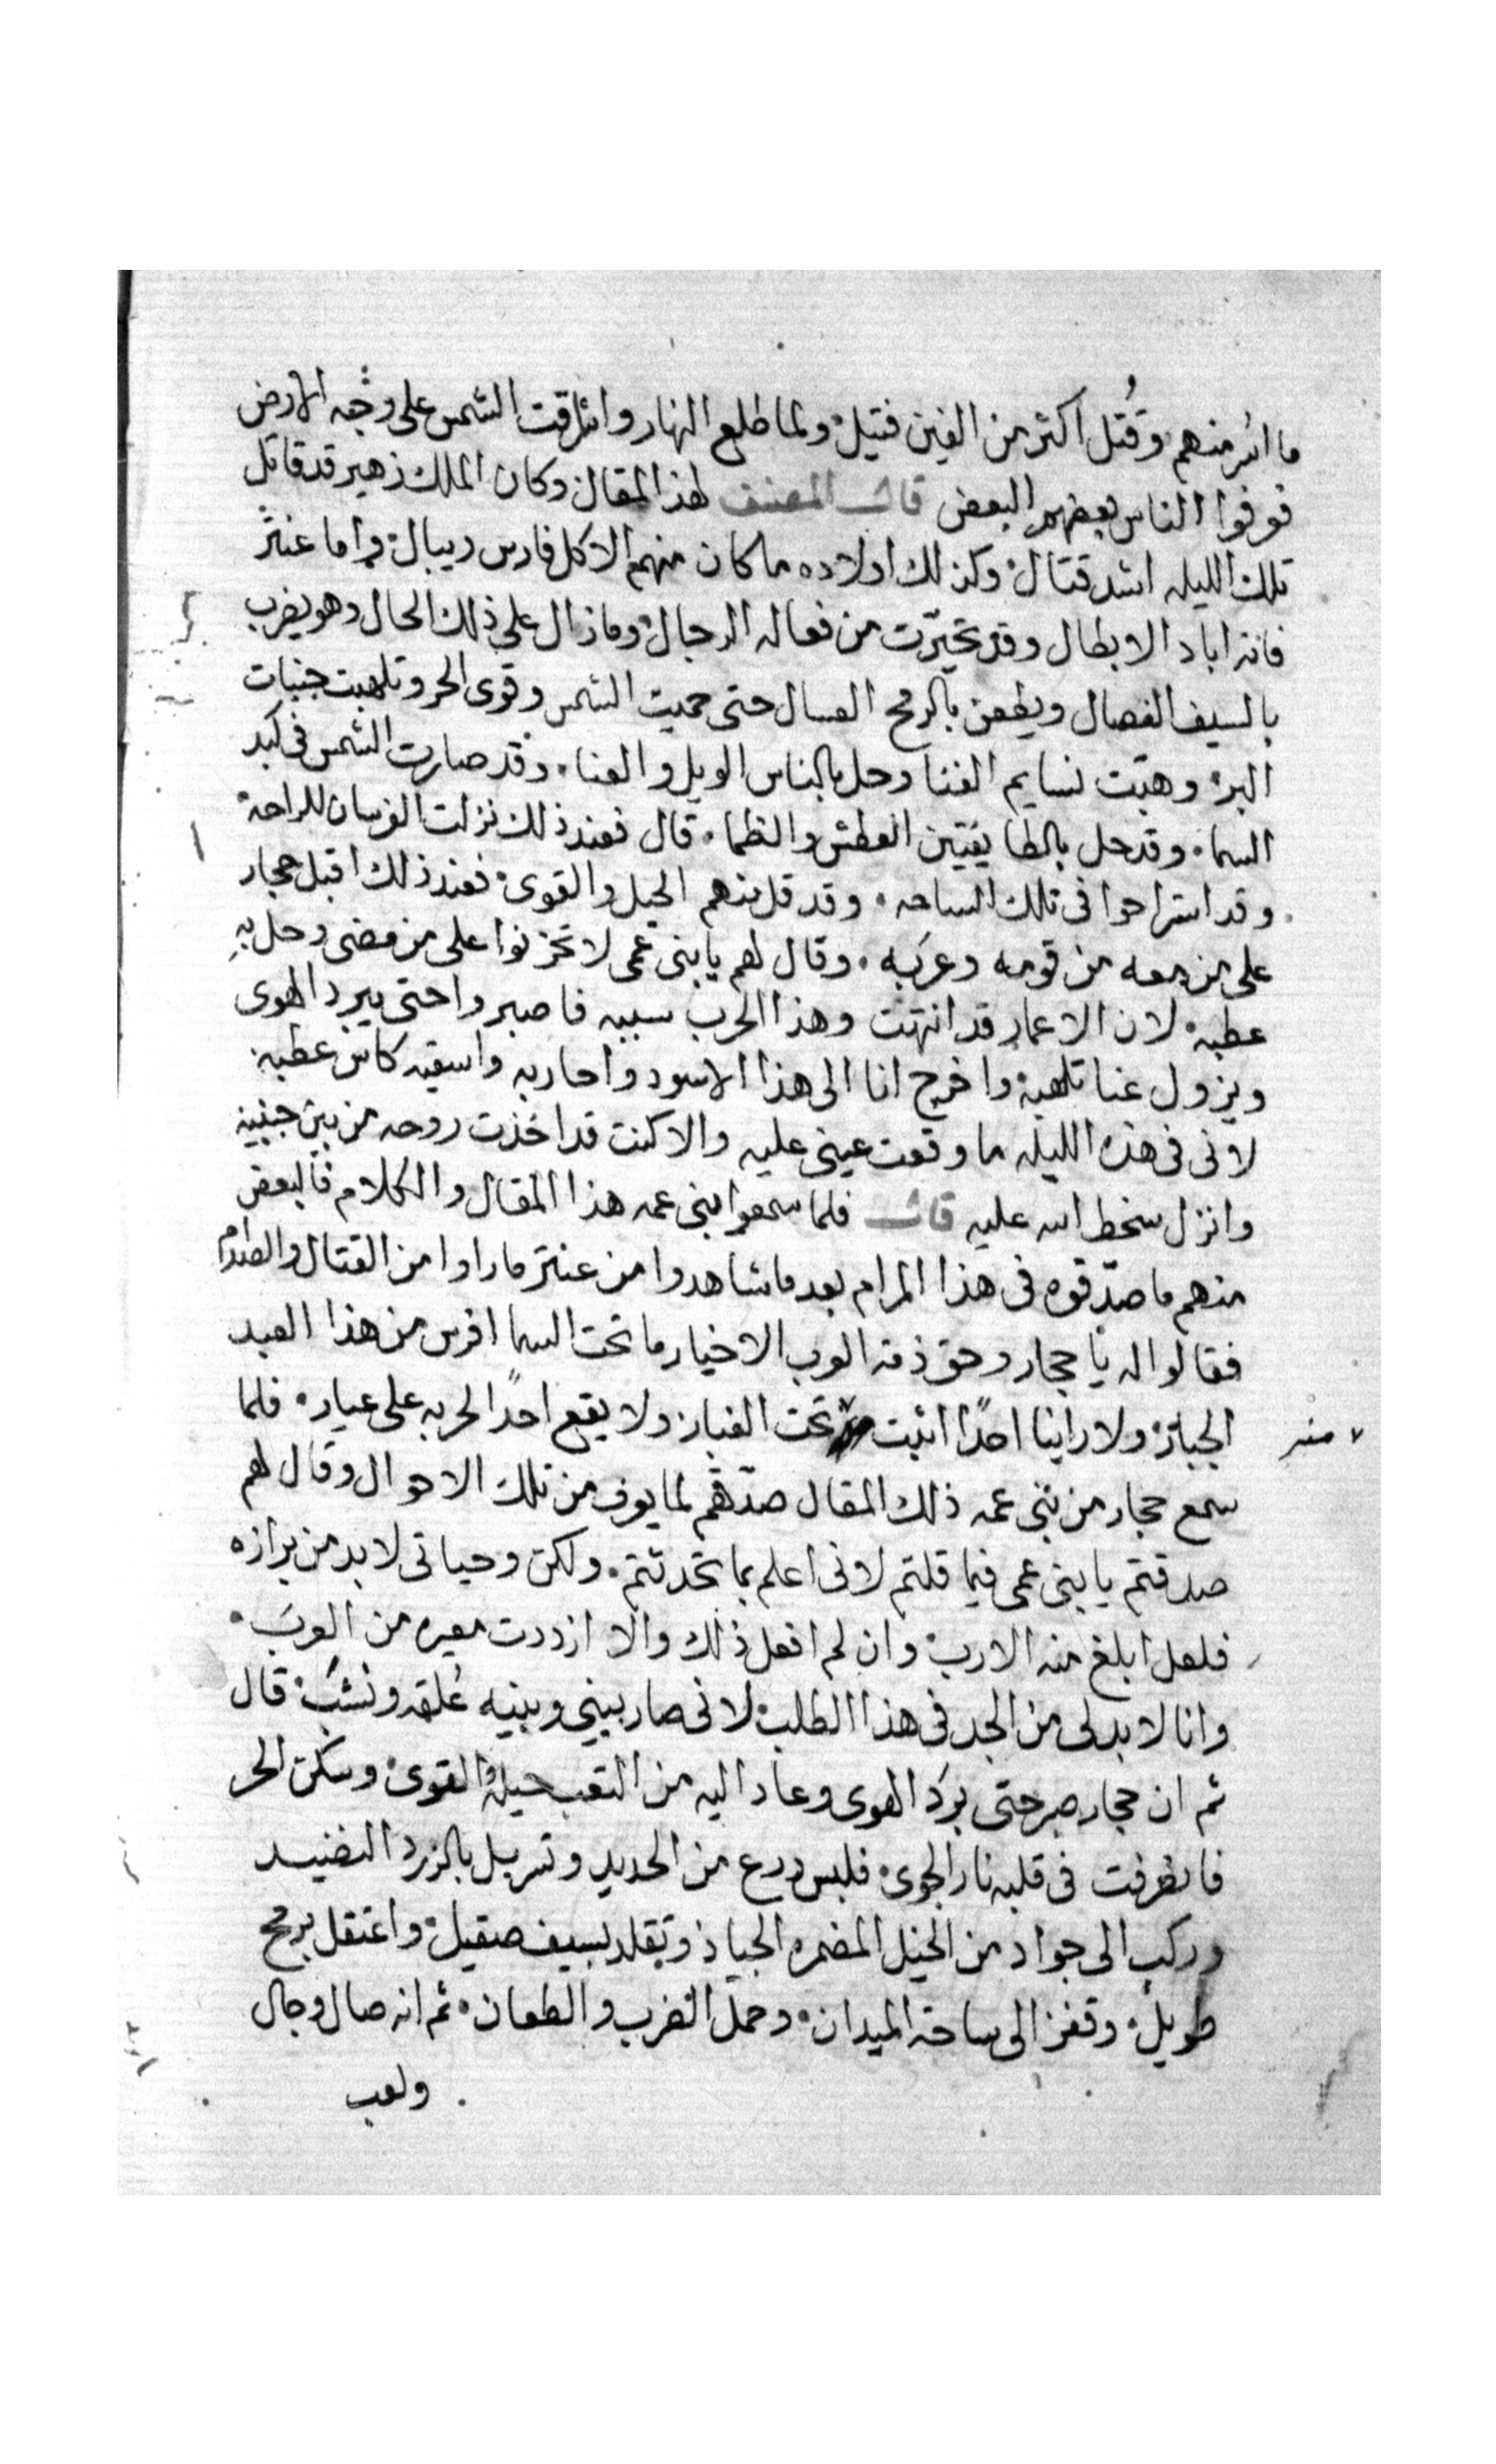 ما اسر منهم وقُتل اكثر من الفين قتيل ولما طلع النهار واشرقت الشمس على وجه الارض
فعرفوا الناس بعضهم البعض قال المصنف لهذا المقال وكان الملك زهير قد قاتل
تلك الليله اشد قتال وكذلك اولاده ما كان منهم الا كل فارس ريبال واما عنتر
فانه اباد الابطال وقد تحيّرت من فعاله الرجال ومازال على ذلك الحال وهو يضرب
بالسيف الفصال ويطعن بالرمح العسال حتى حميت الشمس وقوى الحر وتلهبت جنبات
البر وهبّت نسايم الفنا وحل بالناس الويل والعنا وقد صارت الشمس فى كبد
السما وقد حل بالطايفتين العطش والظما قال فعند ذلك نزلت الفرسان للراحة
وقد استراحوا فى تلك الساحه وقد قل منهم الحيل والقوى فعند ذلك اقبل حجار
على من معه من قومه وعربه وقال لهم يا بنى عمى لا تحزنوا على من مضى وحل بهِ
عطبه لان الاعمار قد انتهت وهذا الحرب سببه فاصبروا حتى يبرد الهوى
ويزول عنا تلهبه واخرج انا الى هذا الاسود واحاربه واسقيه كاس عطبه
لانى فى هذه الليله ما وقعت عينى عليه والا كنت قد اخذت روحه من بين جنبيه
وانزل سخط الله عليه قال فلما سمعوا بنى عمه هذا المقال والكلام فالبعض
منهم ما صدّقوه فى هذا المرام بعد ما شاهدوا من عنتر ما راوا من القتال والصدام
فقالوا له يا حجار وحق ذمة العرب الاخيار ما تحت السما افرس من هذا العبد
الجبار ولا راينا احدًا اثبت تحت الغبار ولا يقع احدًا لحربه على عيار فلما
منه
سمع حجار من بنى عمه ذلك المقال صدّقهم لما يعرف من تلك الاحوال وقال لهم
صدقتم يا بنى عمى فيما قلتم لانى اعلم بما تحدثتم ولكن وحياتى لا بد من برازه
فلعل ابلغ منه الارب وان لم افعل ذلك والا ازددت معيره من العرب
وانا لا بد لى من الجد فى هذا الطلب لانى صار بينى وبينه عُلقه ونشب قال
ثم ان حجار صبر حتى برَد الهوى وعاد اليه من التعب حيله والقوى وسكن الحر
فانطرفت فى قلبه نار الجوى فلبس درع من الحديد وتسربل بالزرد النضيد
وركب الى جواد من الخيل المضمره الجياد وتقلد بسيف صقيل واعتقل برمح
طويل وقفز الى ساحة الميدان وحمل الضرب والطعان ثم انه صال وجال
ولعب